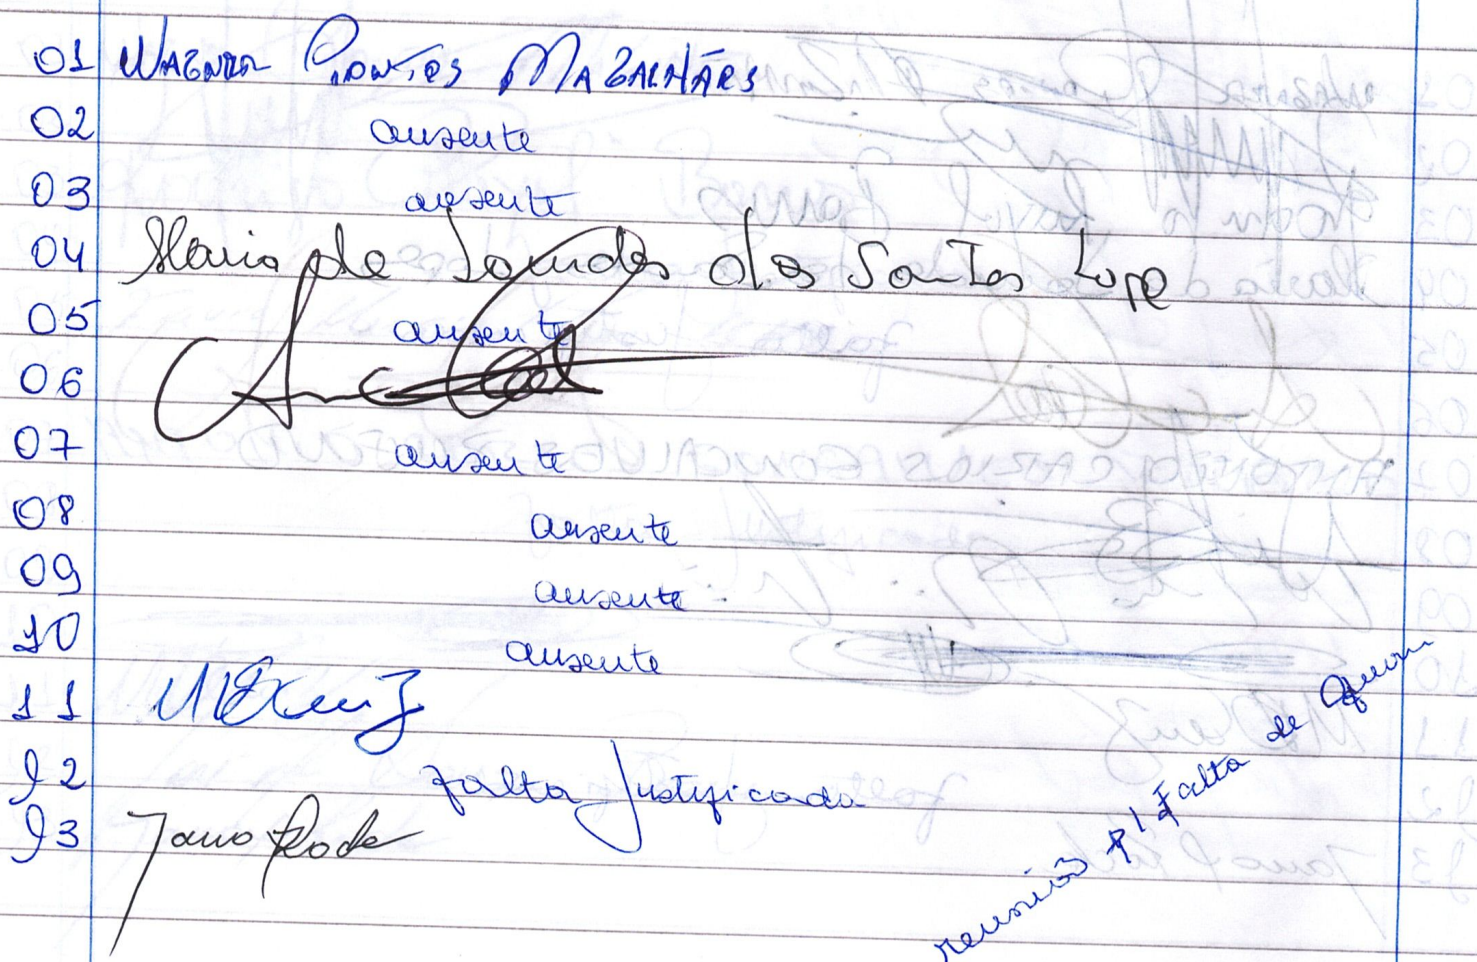 01 Wagner Pontes Magalhães
02 ausente
03 ausente
04 Maria de Lourdes dos Santos Lope
05 ausente
06
07 ausente
08 ausente
09 ausente
10 ausente
11
12 falta Justificada
13
reunião p/ Falta de Quorum